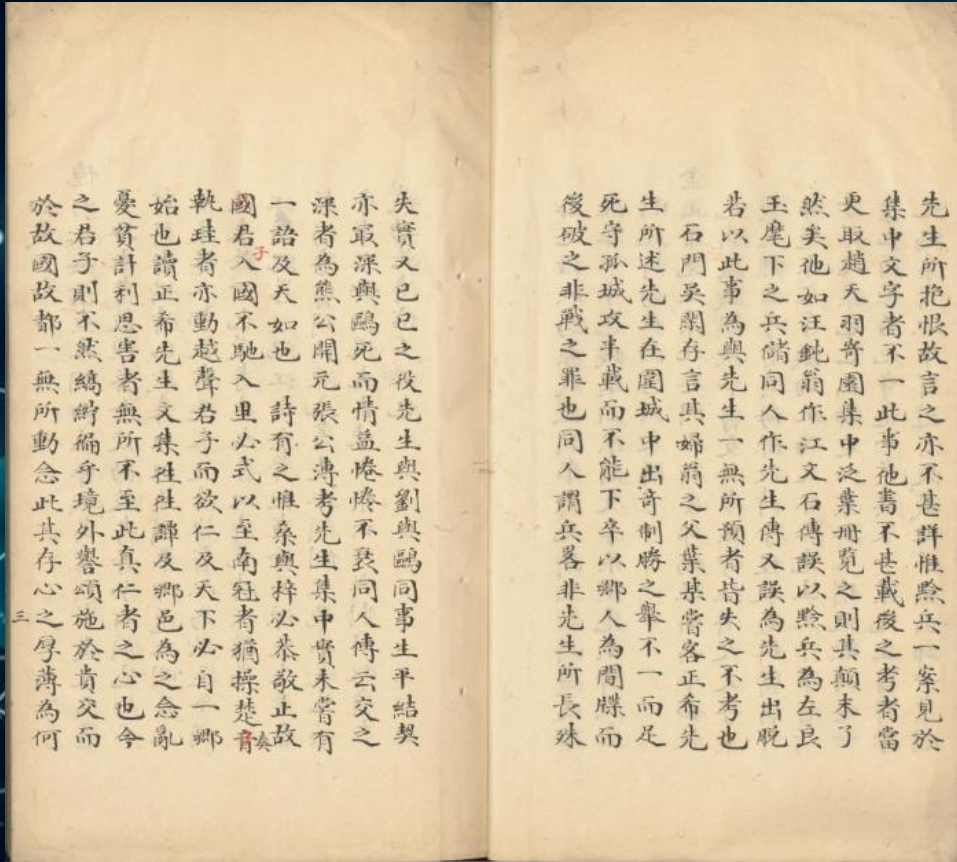 先生所抱恨故言之亦不甚詳惟黔兵一案見於
集中文字者不一此事他書不甚載後之考者當
更取趙天羽寄園集中泛葉冊覽之則其顛末了
然矣他如汪鈍翁作江文石傳誤以黔兵為左良
玉麾下之兵儲同人作先生傳又誤為先生出脫
若以此事為與先生一無所預者皆失之不考也
石門吳閑存言其婦翁之父葉某嘗客正希先
生所述先生在圍城中出奇制勝之舉不一而足
死守孤城攻半載而不能下卒以鄉人為間牒而
後破之非戰之罪也同人謂兵畧非先生所長殊
失實又已巳之役先生與劉與鷗同事生平結契
亦㝡深與鷗死而情益惓惓不衰同人傳云交之
深者為熊公開元張公溥考先生集中實未嘗有
一語及天如也 詩有之惟桑與梓必恭敬止故
國君入國不馳入里必式以至南冠者猶操楚音
子
奏
執珪者亦動越聲君子而欲仁及天下必自一鄉
始也讀正希先生文集徃徃諄及鄉邑為之念亂
憂貧計利思害者無所不至此真仁者之心也今
之君子則不然縞紵徧乎境外譽頌施於貴交而
於故國故都一無所動念此其存心之厚薄為何
三